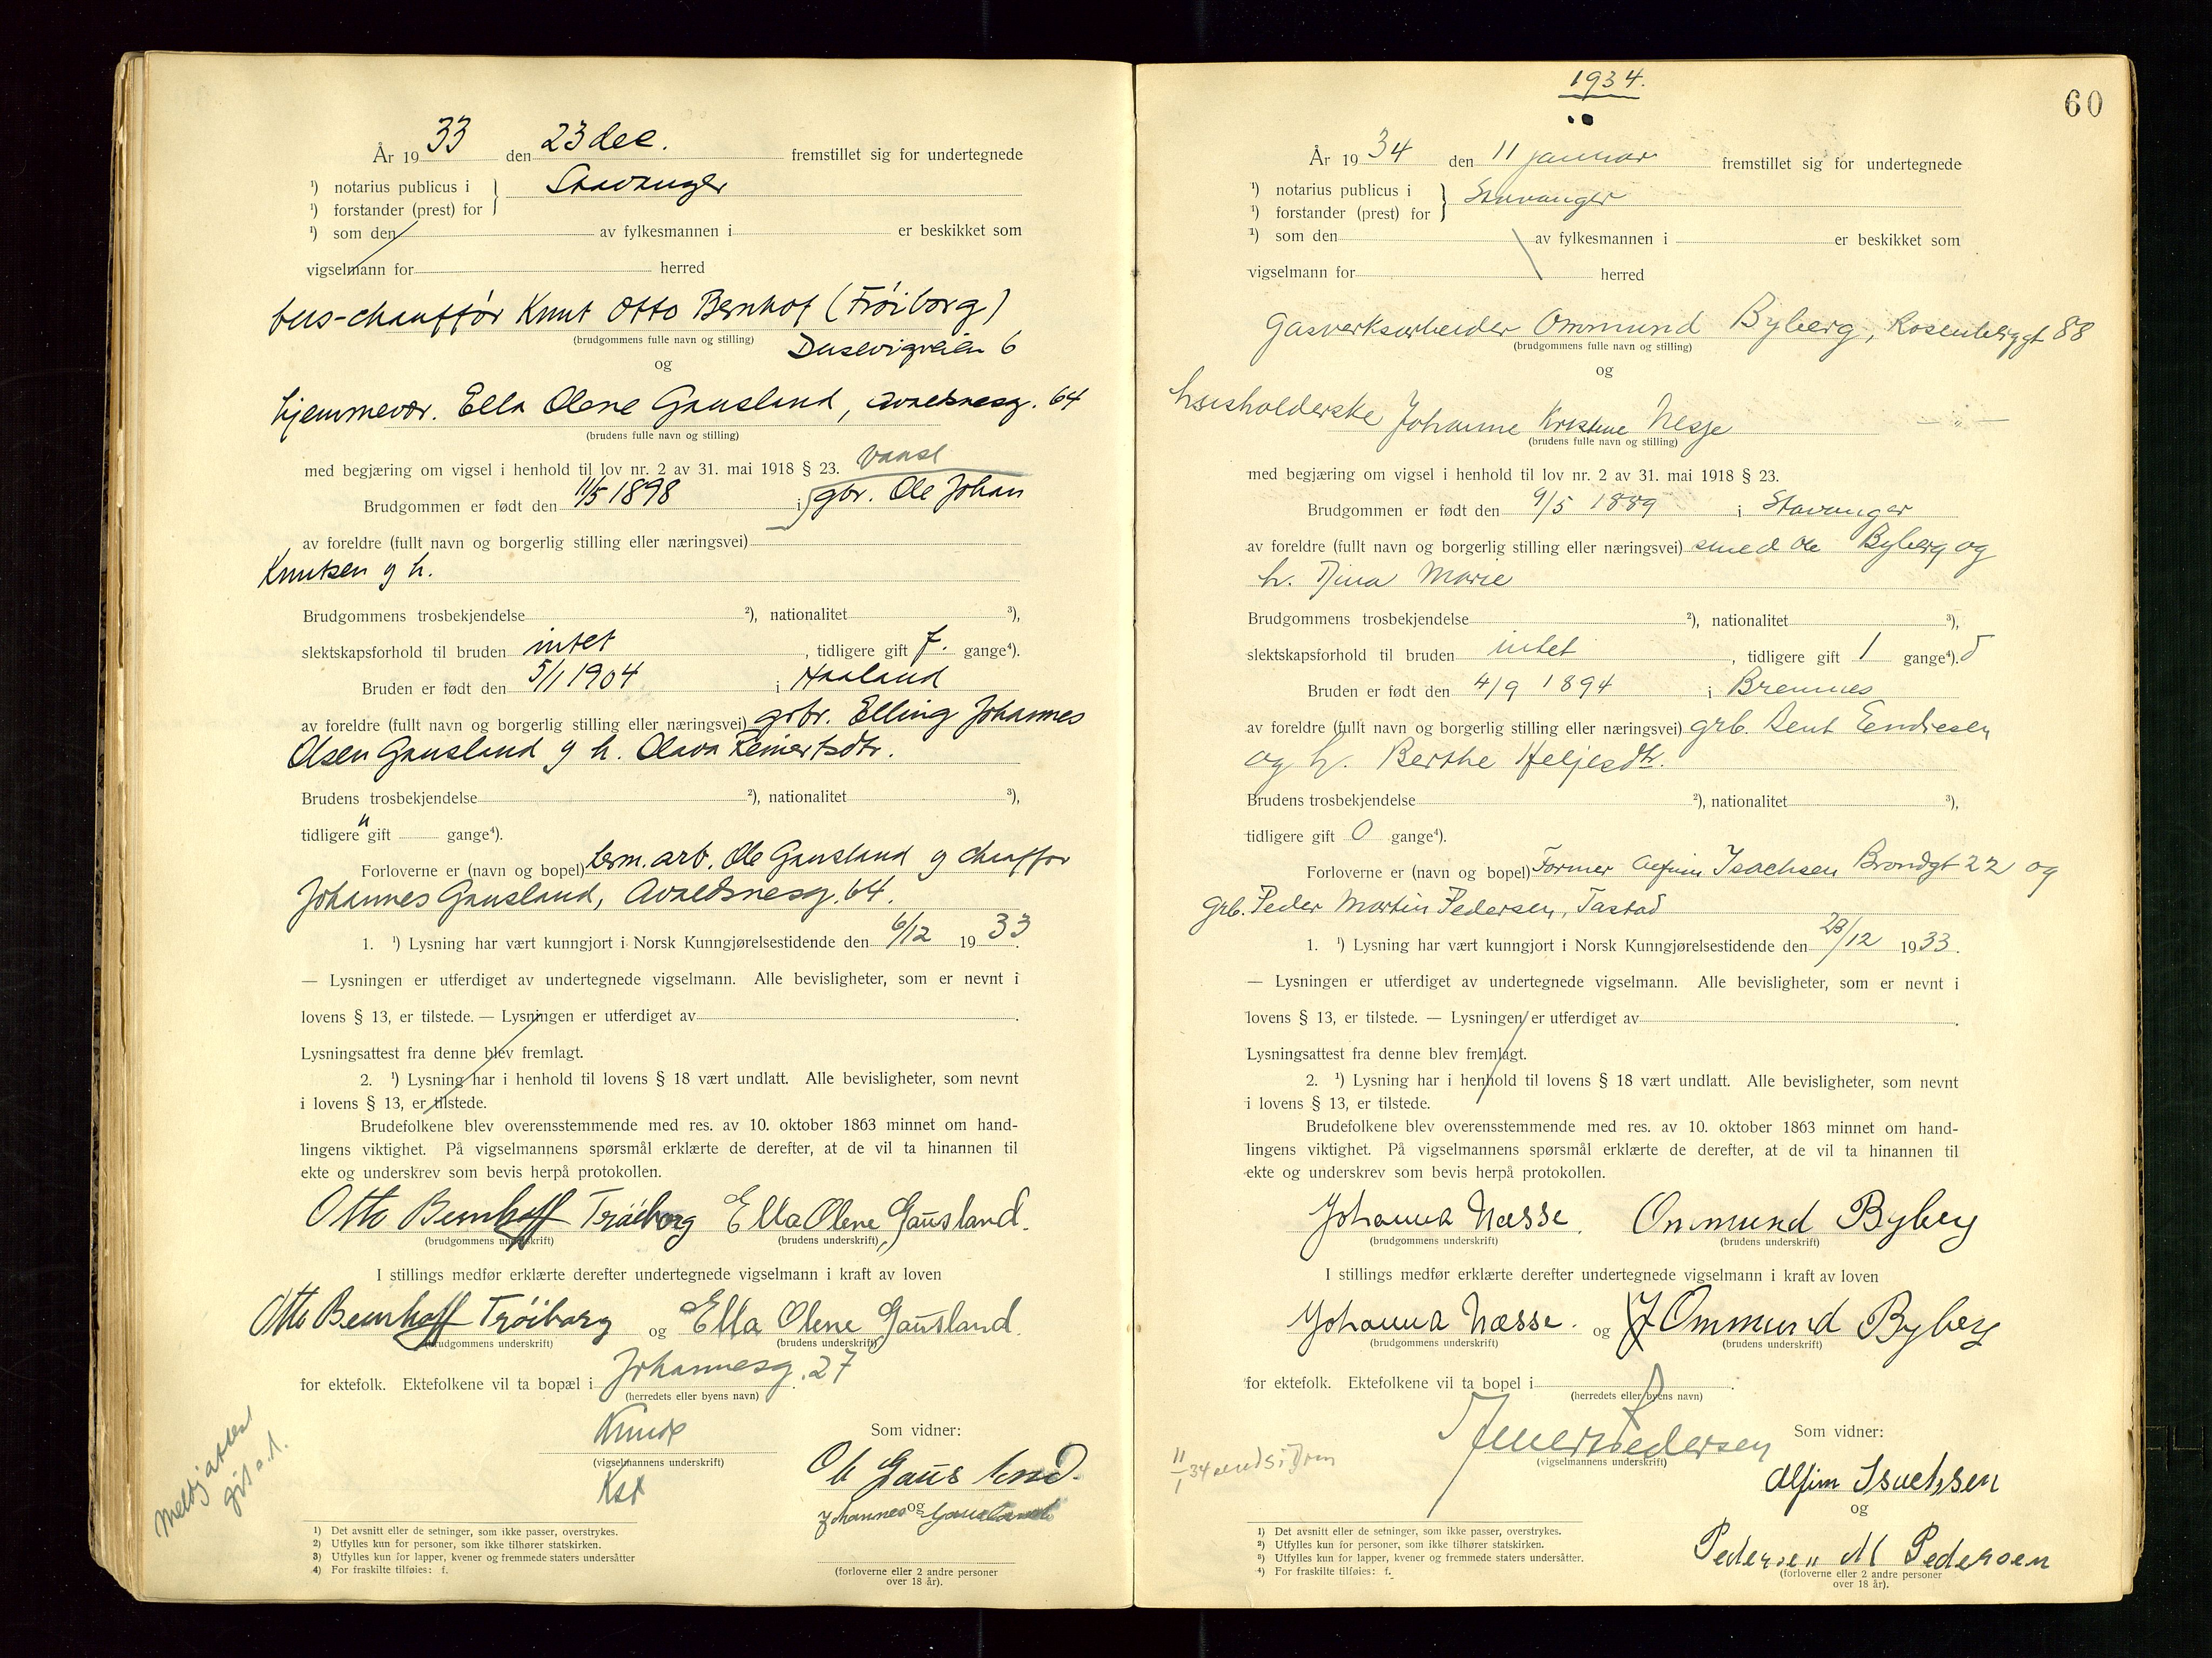 År 1933 den 23 dec. fremstillet sig for undertegnede
¹) notarius publicus i } Stavanger
¹) forstander (prest) for
¹) som den av fylkesmannen i er beskikket som
vigselmann for herred
bus-chauffør Knut Otto Bernhof (Frøiborg)
(brudgommens fulle navn og stilling) Dusevigveien 6
og
hjemmevær. Ella Olene Gausland, Avaldsnesg. 64
(brudens fulle navn og stilling)
med begjæring om vigsel i henhold til lov nr. 2 av 31. mai 1918 § 23. Vanse
Brudgommen er født den 11/5 1898 i gbr. Ole Johan
av foreldre (fullt navn og borgerlig stilling eller næringsvei)
Knutsen og h.
Brudgommens trosbekjendelse ²), nationalitet ³),
slektskapsforhold til bruden intet, tidligere gift f. gange⁴).
Bruden er født den 5/1 1904 i Haaland
av foreldre (fullt navn og borgerlig stilling eller næringsvei) grbr. Elling Johannes
Olsen Gausland og h. Olava Reinertsdtr.
Brudens trosbekjendelse ²), nationalitet ³),
tidligere " gift gange⁴).
Forloverne er (navn og bopel) arb. Ole Gausland og chauffør
Johannes Gausland, Avaldsnesg. 64.
1. ¹) Lysning har vært kunngjort i Norsk Kunngjørelsestidende den 6/12 1933.
— Lysningen er utferdiget av undertegnede vigselmann. Alle bevisligheter, som er nevnt i
lovens § 13, er tilstede. — Lysningen er utferdiget av .
Lysningsattest fra denne blev fremlagt.
2. ¹) Lysning har i henhold til lovens § 18 vært undlatt. Alle bevisligheter, som nevnt
i lovens § 13, er tilstede.
Brudefolkene blev overensstemmende med res. av 10. oktober 1863 minnet om hand-
lingens viktighet. På vigselmannens spørsmål erklærte de derefter, at de vil ta hinannen til
ekte og underskrev som bevis herpå protokollen.
Otto Bernhoff Frøiborg Ella Olene Gausland.
(brudgommens underskrift) (brudens underskrift)
I stillings medfør erklærte derefter undertegnede vigselmann i kraft av loven
Otto Bernhoff Frøiborg og Ella Olene Gausland.
(brudgommens underskrift) (brudens underskrift)
for ektefolk. Ektefolkene vil ta bopæl i Johannesg. 27.
(herredets eller byens navn)
Som vidner:
(vigselmannens underskrift)
Ole Gausland.
og
Johannes Gausland
(forloverne eller 2 andre personer
over 18 år).
1) Det avsnitt eller de setninger, som ikke passer, overstrykes.
2) Utfylles kun for personer, som ikke tilhører statskirken.
3) Utfylles kun for lapper, kvener og fremmede staters undersåtter
4) For fraskilte tilføies: f.
1934.
60
År 1934 den 11 januar fremstillet sig for undertegnede
¹) notarius publicus i } Stavanger
¹) forstander (prest) for
¹) som den av fylkesmannen i er beskikket som
vigselmann for herred
Gasverksarbeider Ommund Byberg, Rosenberggt 88
(brudgommens fulle navn og stilling)
og
husholderske Johanne Kristine Nesje — " —
(brudens fulle navn og stilling)
med begjæring om vigsel i henhold til lov nr. 2 av 31. mai 1918 § 23.
Brudgommen er født den 9/5 1889 i Stavanger
av foreldre (fullt navn og borgerlig stilling eller næringsvei) smed Ole Byberg og
h. Dina Marie
Brudgommens trosbekjendelse ²), nationalitet ³),
slektskapsforhold til bruden intet, tidligere gift 1 gange⁴).
Bruden er født den 4/9 1894 i Bremnes
av foreldre (fullt navn og borgerlig stilling eller næringsvei) grb. Bent Endresen
og h. Berthe Heljesdtr.
Brudens trosbekjendelse ²), nationalitet ³),
tidligere gift 0 gange⁴).
Forloverne er (navn og bopel) Former Alfin Isachsen Brondgt 22 og
grb. Peder Martin Pedersen, Tastad
1. ¹) Lysning har vært kunngjort i Norsk Kunngjørelsestidende den 23/12 1933.
— Lysningen er utferdiget av undertegnede vigselmann. Alle bevisligheter, som er nevnt i
lovens § 13, er tilstede. — Lysningen er utferdiget av .
Lysningsattest fra denne blev fremlagt.
2. ¹) Lysning har i henhold til lovens § 18 vært undlatt. Alle bevisligheter, som nevnt
i lovens § 13, er tilstede.
Brudefolkene blev overensstemmende med res. av 10. oktober 1863 minnet om hand-
lingens viktighet. På vigselmannens spørsmål erklærte de derefter, at de vil ta hinannen til
ekte og underskrev som bevis herpå protokollen.
Johanna Næsse. Ommund Byberg
(brudgommens underskrift) (brudens underskrift)
I stillings medfør erklærte derefter undertegnede vigselmann i kraft av loven
Johanna Næsse. og Ommund Byberg
(brudgommens underskrift) (brudens underskrift)
for ektefolk. Ektefolkene vil ta bopel i .
(herredets eller byens navn)
Som vidner:
(vigselmannens underskrift)
Alfin Isachsen
og
Pedersen M Pedersen
(forloverne eller 2 andre personer
over 18 år).
1) Det avsnitt eller de setninger, som ikke passer, overstrykes.
2) Utfylles kun for personer, som ikke tilhører statskirken.
3) Utfylles kun for lapper, kvener og fremmede staters undersåtter.
4) For fraskilte tilføies: f.